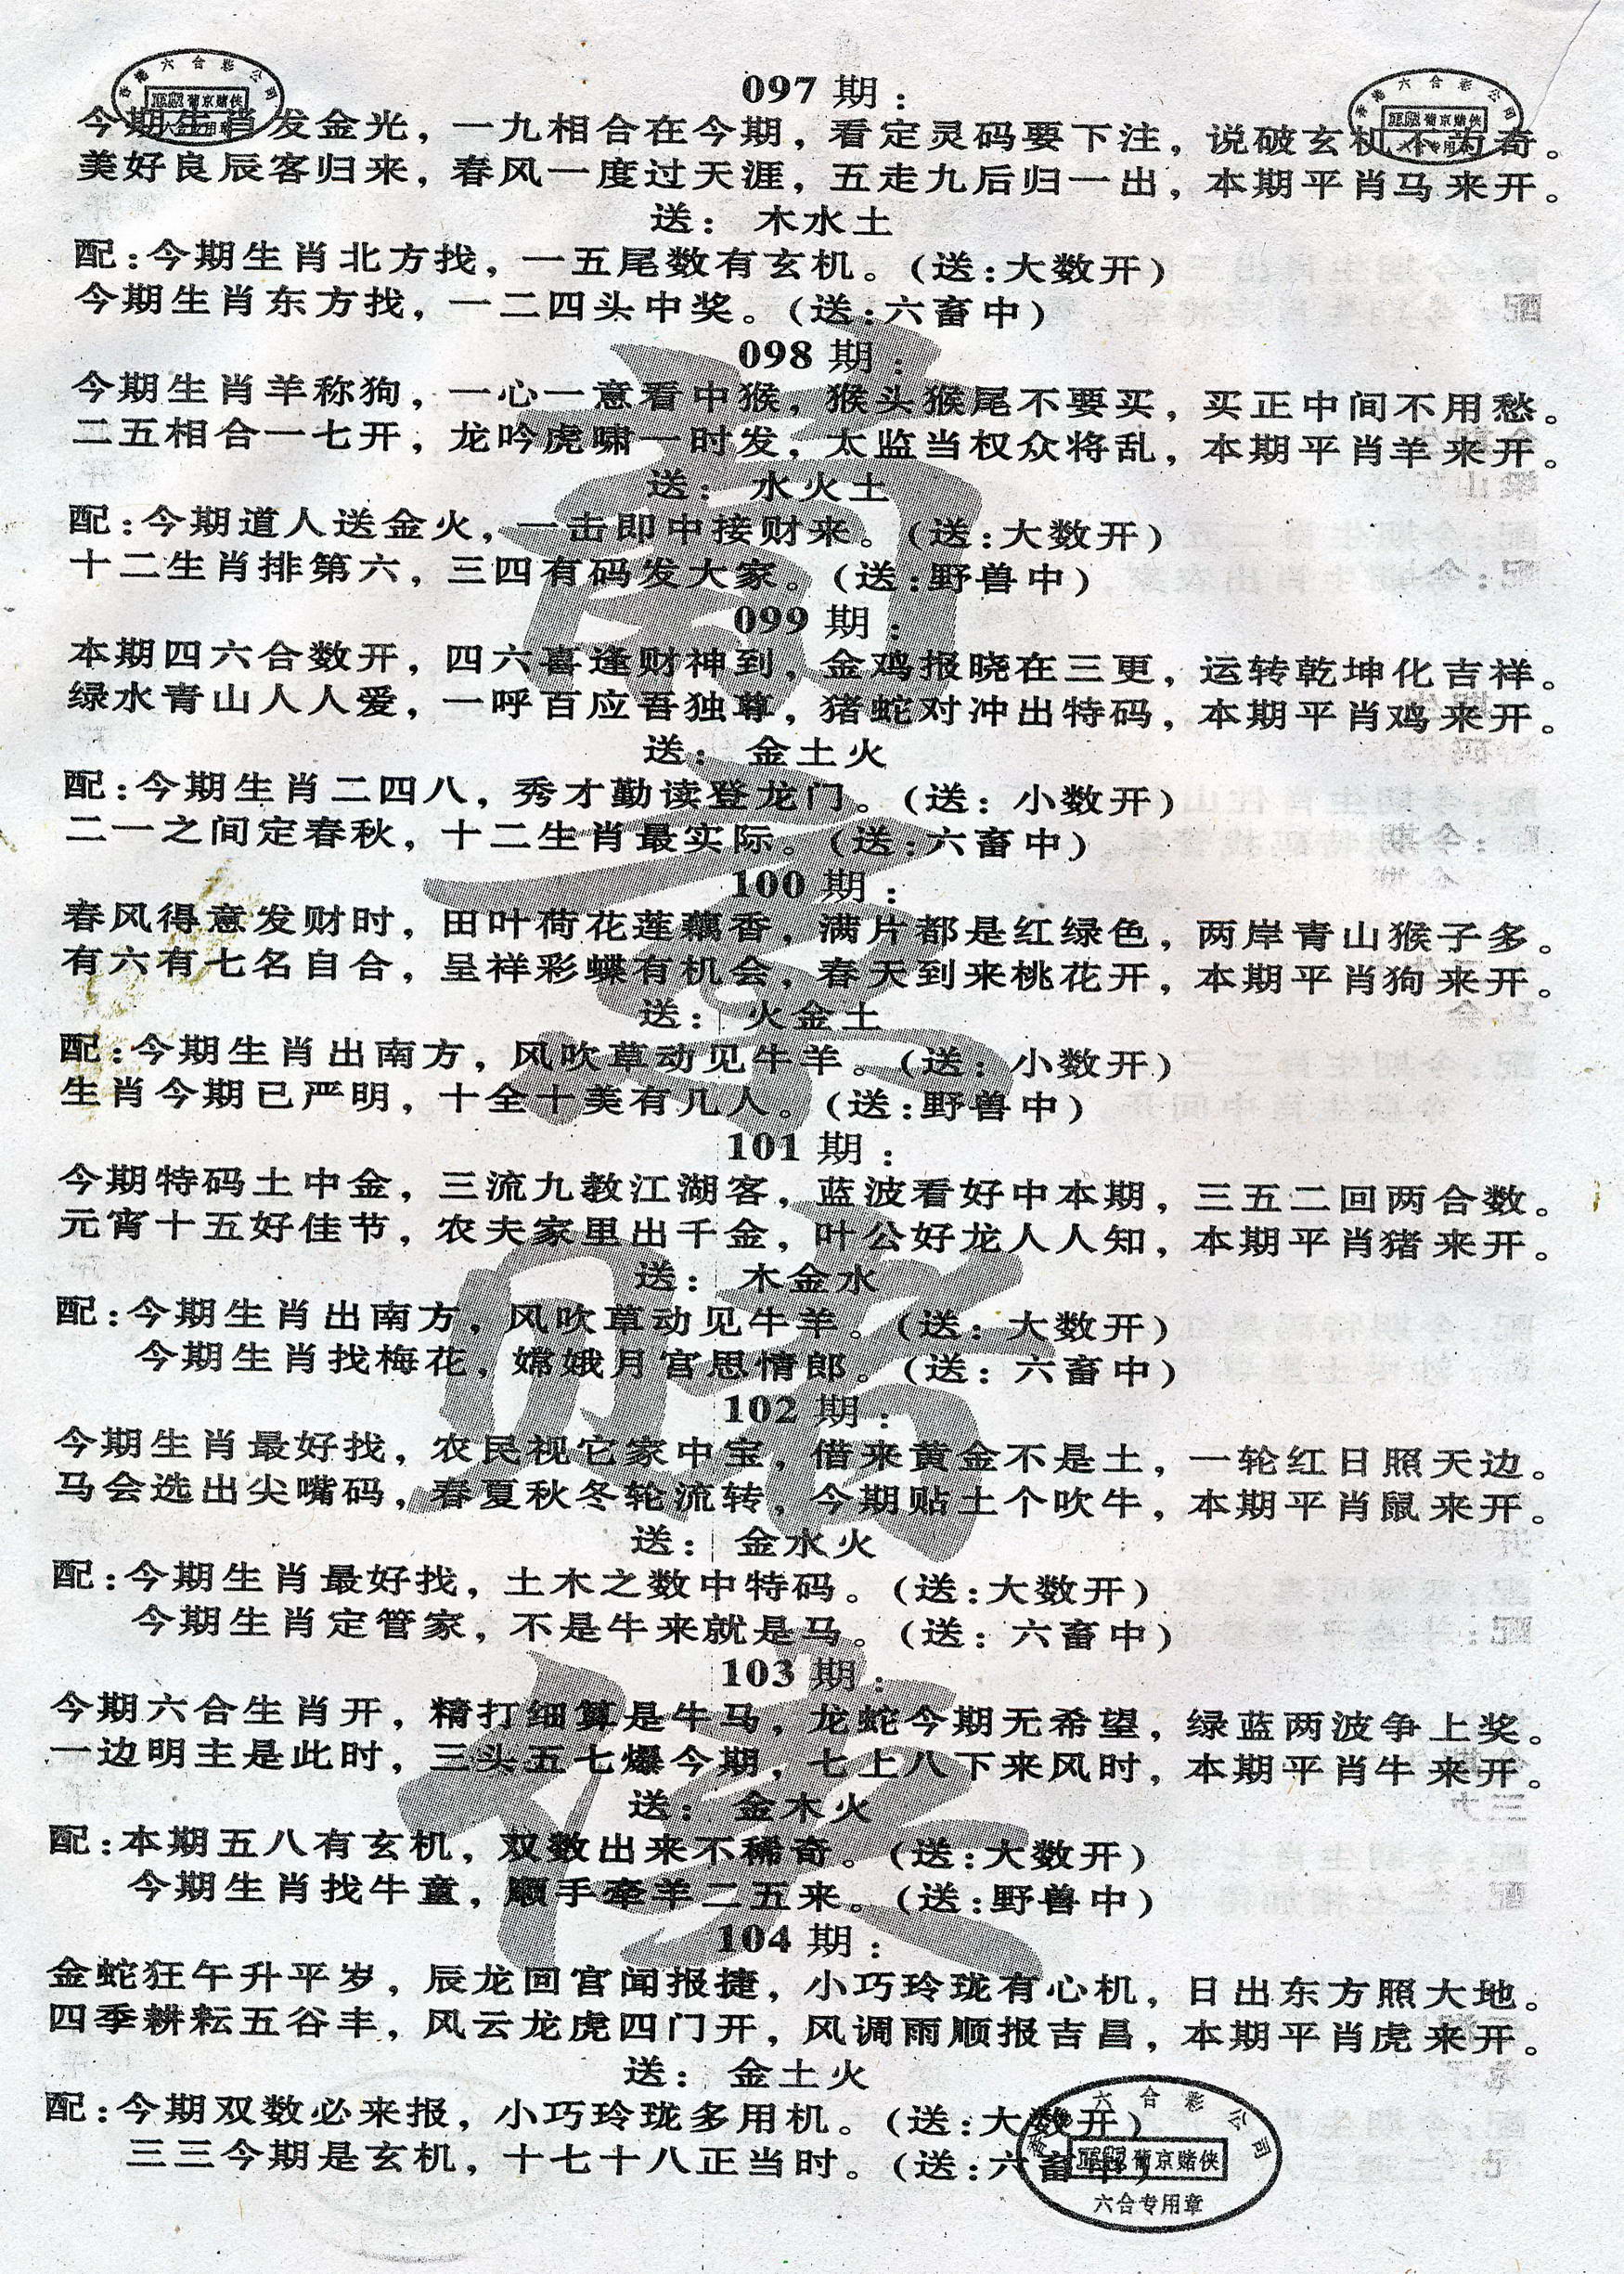 097期：
今期生肖发金光，一九相合在今期，看定灵码要下注，说破玄机不为奇。
美好良辰客归来，春风一度过天涯，五走九后归一出，本期平肖马来开。
送：木水土
配：今期生肖北方找，一五尾数有玄机。（送：大数开）
今期生肖东方找，一二四头中奖。（送：六畜中）
098期：
今期生肖羊称狗，一心一意看中猴，猴头猴尾不要买，买正中间不用愁。
二五相合一七开，龙吟虎啸一时发，太监当权众将乱，本期平肖羊来开。
送：水火土
配：今期道人送金火，一击即中接财来。（送：大数开）
十二生肖排第六，三四有码发大家。（送：野兽中）
099期：
本期四六合数开，四六喜逢财神到，金鸡报晓在三更，运转乾坤化吉祥。
绿水青山人人爱，一呼百应吾独尊，猪蛇对冲出特码，本期平肖鸡来开。
送：金土火
配：今期生肖二四八，秀才勤读登龙门。（送：小数开）
二一之间定春秋，十二生肖最实际。（送：六畜中）
100期：
春风得意发财时，田叶荷花莲藕香，满片都是红绿色，两岸青山猴子多。
有六有七名自合，呈祥彩蝶有机会，春天到来桃花开，本期平肖狗来开。
送：火金土
配：今期生肖出南方，风吹草动见牛羊。（送：小数开）
生肖今期已严明，十全十美有几人。（送：野兽中）
101期：
今期特码土中金，三流九教江湖客，蓝波看好中本期，三五二回两合数。
元宵十五好佳节，农夫家里出千金，叶公好龙人人知，本期平肖猪来开。
送：木金水
配：今期生肖出南方，风吹草动见牛羊。（送：大数开）
今期生肖找梅花，嫦娥月宫思情郎。（送：六畜中）
102期：
今期生肖最好找，农民视它家中宝，借来黄金不是土，一轮红日照天边。
马会选出尖嘴码，春夏秋冬轮流转，今期贴土个吹牛，本期平肖鼠来开。
送：金水火
配：今期生肖最好找，土木之数中特码。（送：大数开）
今期生肖定管家，不是牛来就是马。（送：六畜中）
103期：
今期六合生肖开，精打细算是牛马，龙蛇今期无希望，绿蓝两波争上奖。
一边明主是此时，三头五七爆今期，七上八下来风时，本期平肖牛来开。
送：金木火
配：本期五八有玄机，双数出来不稀奇。（送：大数开）
今期生肖找牛童，顺手牵羊二五来。（送：野兽中）
104期：
金蛇狂午升平岁，辰龙回官闻报捷，小巧玲珑有心机，日出东方照大地。
四季耕耘五谷丰，风云龙虎四门开，风调雨顺报吉昌，本期平肖虎来开。
送：金土火
配：今期双数必来报，小巧玲珑多用机。（送：大数开）
三三今期是玄机，十七十八正当时。（送：六畜中）
香港六合彩公司
葡京赌侠
六合专用章